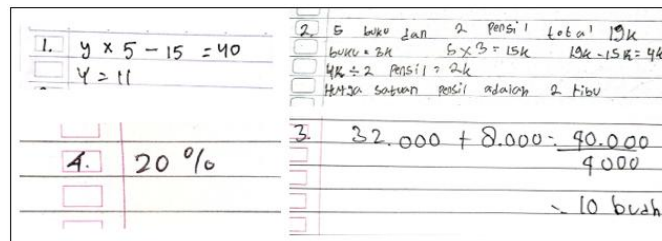 1. y x 5 - 15 = 40
y = 11
2. 5 buku dan 2 pensil total 19k
buku = 3k 5 x 3 = 15k 19k - 15k = 4k
4k ÷ 2 pensil = 2k
Harga satuan pensil adalah 2 ribu
4. 20 %
3. 32.000 + 8.000 = 40.000
4000
= 10 buah